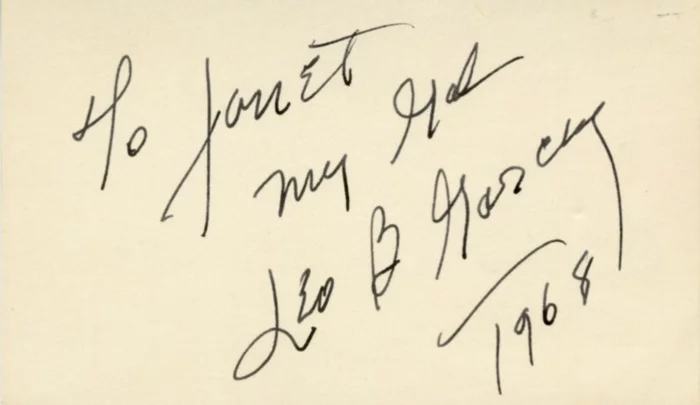 To Janet
my Gal
Leo B Gorcey
1968